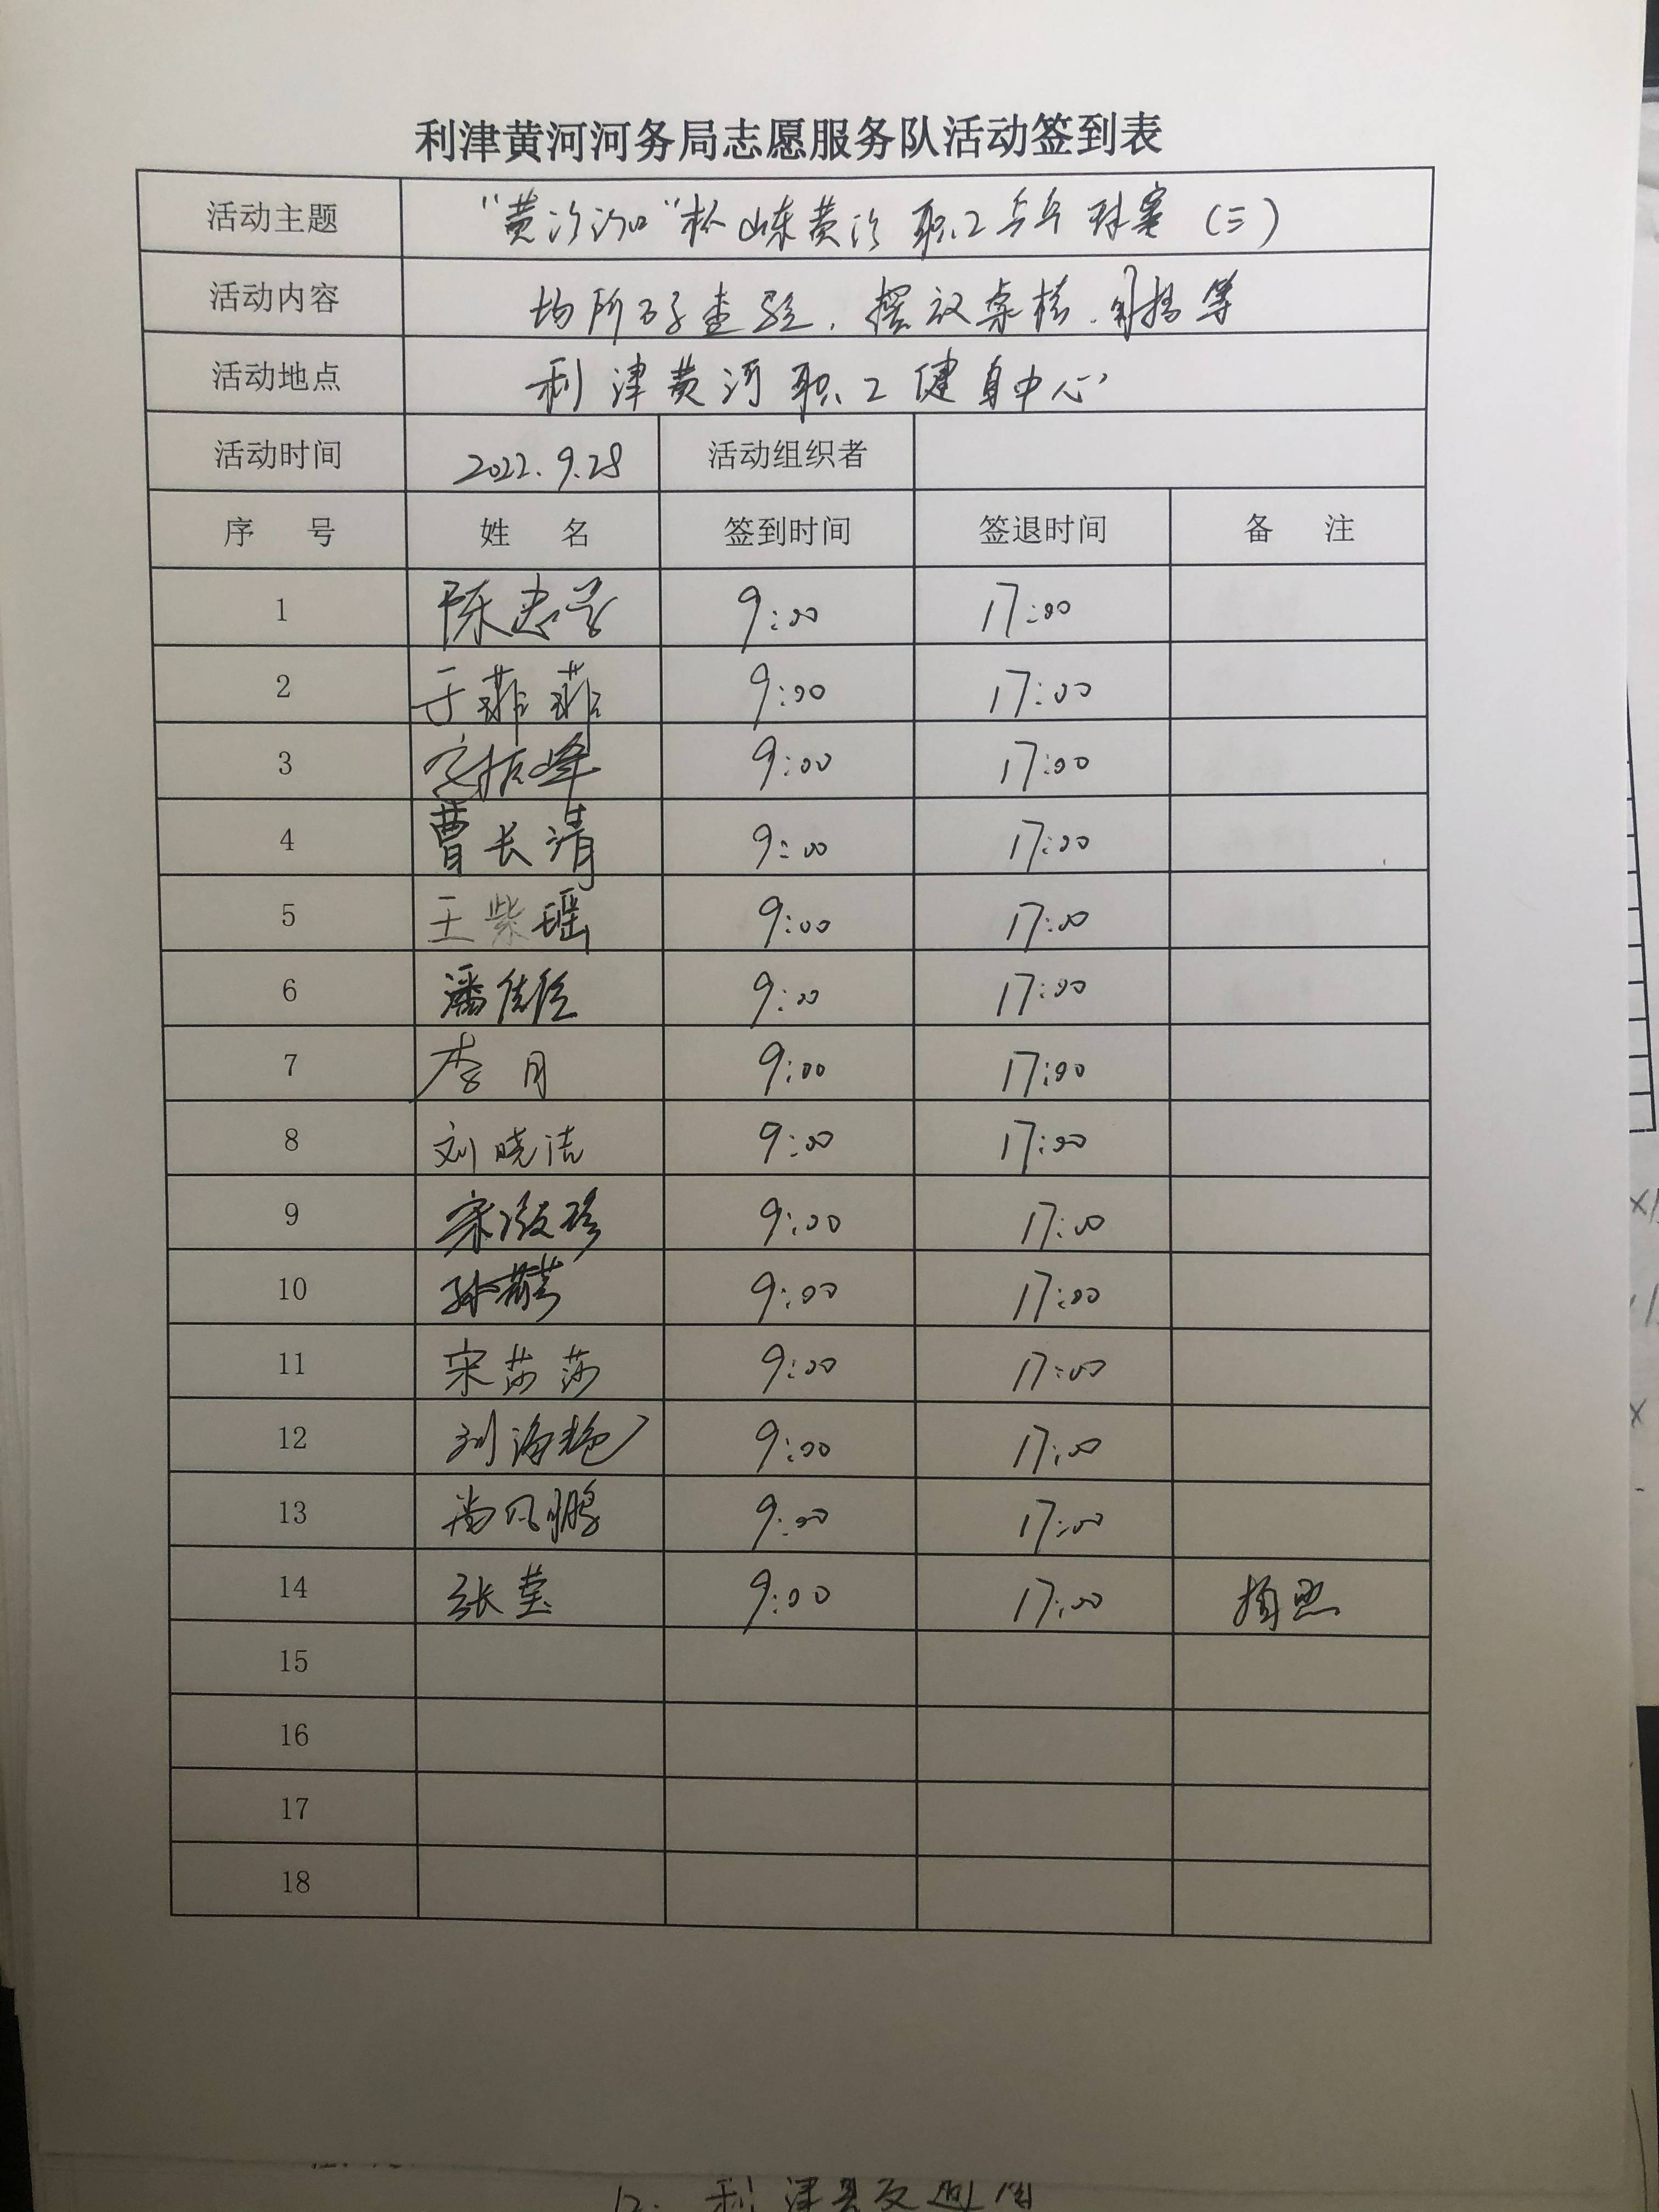 利津黄河河务局志愿服务队活动签到表
活动主题 "黄河河口"杯山东黄河职工乒乓球赛（三）
活动内容 场所码查验、摆放桌椅、引播等
活动地点 利津黄河职工健身中心
活动时间 2022.9.28 活动组织者
序 号 姓 名 签到时间 签退时间 备 注
1 陈忠 9:00 17:00
2 于菲菲 9:00 17:00
3 振峰 9:00 17:00
4 曹长清 9:00 17:00
5 王紫瑶 9:00 17:00
6 潘佳 9:00 17:00
7 李月 9:00 17:00
8 刘晓洁 9:00 17:00
9 宋 9:00 17:00
10 孙 9:00 17:00
11 宋莎莎 9:00 17:00
12 刘海艳 9:00 17:00
13 尚风鹏 9:00 17:00
14 张莹 9:00 17:00 拍照
15
16
17
18
12. 利津县